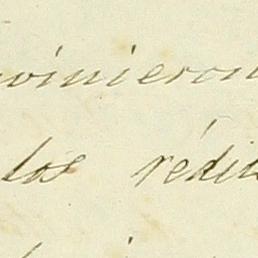 vinieron
los rédit